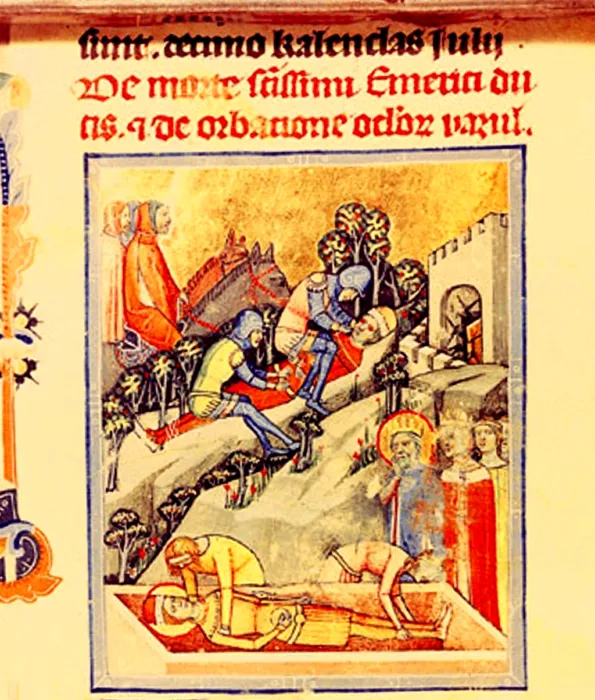 sunt. decimo kalendas Julij
De morte sc̃issimi Emerici du
cis. ⁊ de orbatione oclõr vazul.